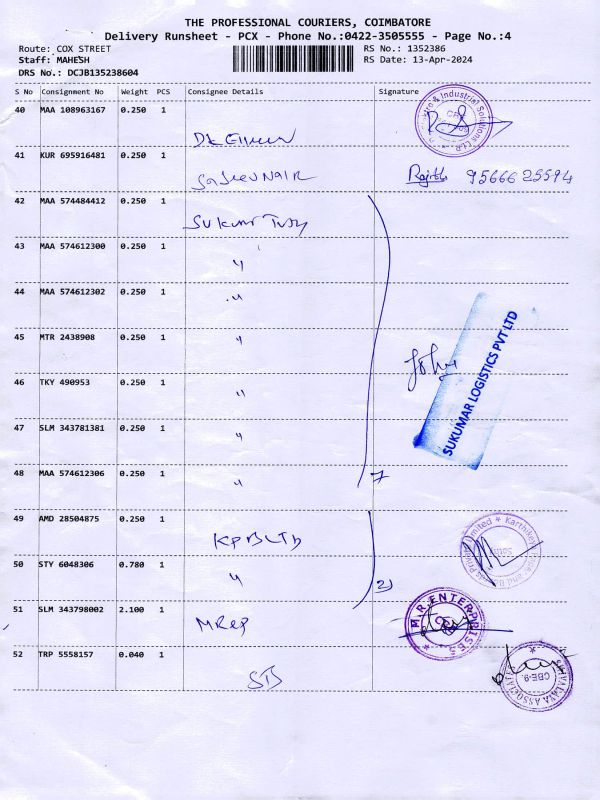 THE PROFESSIONAL COURIERS, COIMBATORE
Delivery Runsheet - PCX - Phone No.:0422-3505555 - Page No.:4
Route: COX STREET
Staff: MAHESH
DRS No.: DCJB135238604
RS No.: 1352386
RS Date: 13-Apr-2024
S No Consignment No Weight PCS Consignee Details Signature
40 MAA 108963167 0.250 1
41 KUR 695916481 0.250 1 95666 25594
42 MAA 574484412 0.250 1
43 MAA 574612300 0.250 1 "
44 MAA 574612302 0.250 1 "
45 MTR 2438908 0.250 1 "
46 TKY 490953 0.250 1 "
47 SLM 343781381 0.250 1 "
48 MAA 574612306 0.250 1 " 7
SUKUMAR LOGISTICS PVT LTD
49 AMD 28504875 0.250 1 KPBLTD
50 STY 6048306 0.780 1 " 2
51 SLM 343798002 2.100 1 M.R.ENTERPRISES
52 TRP 5558157 0.040 1 CBE-9